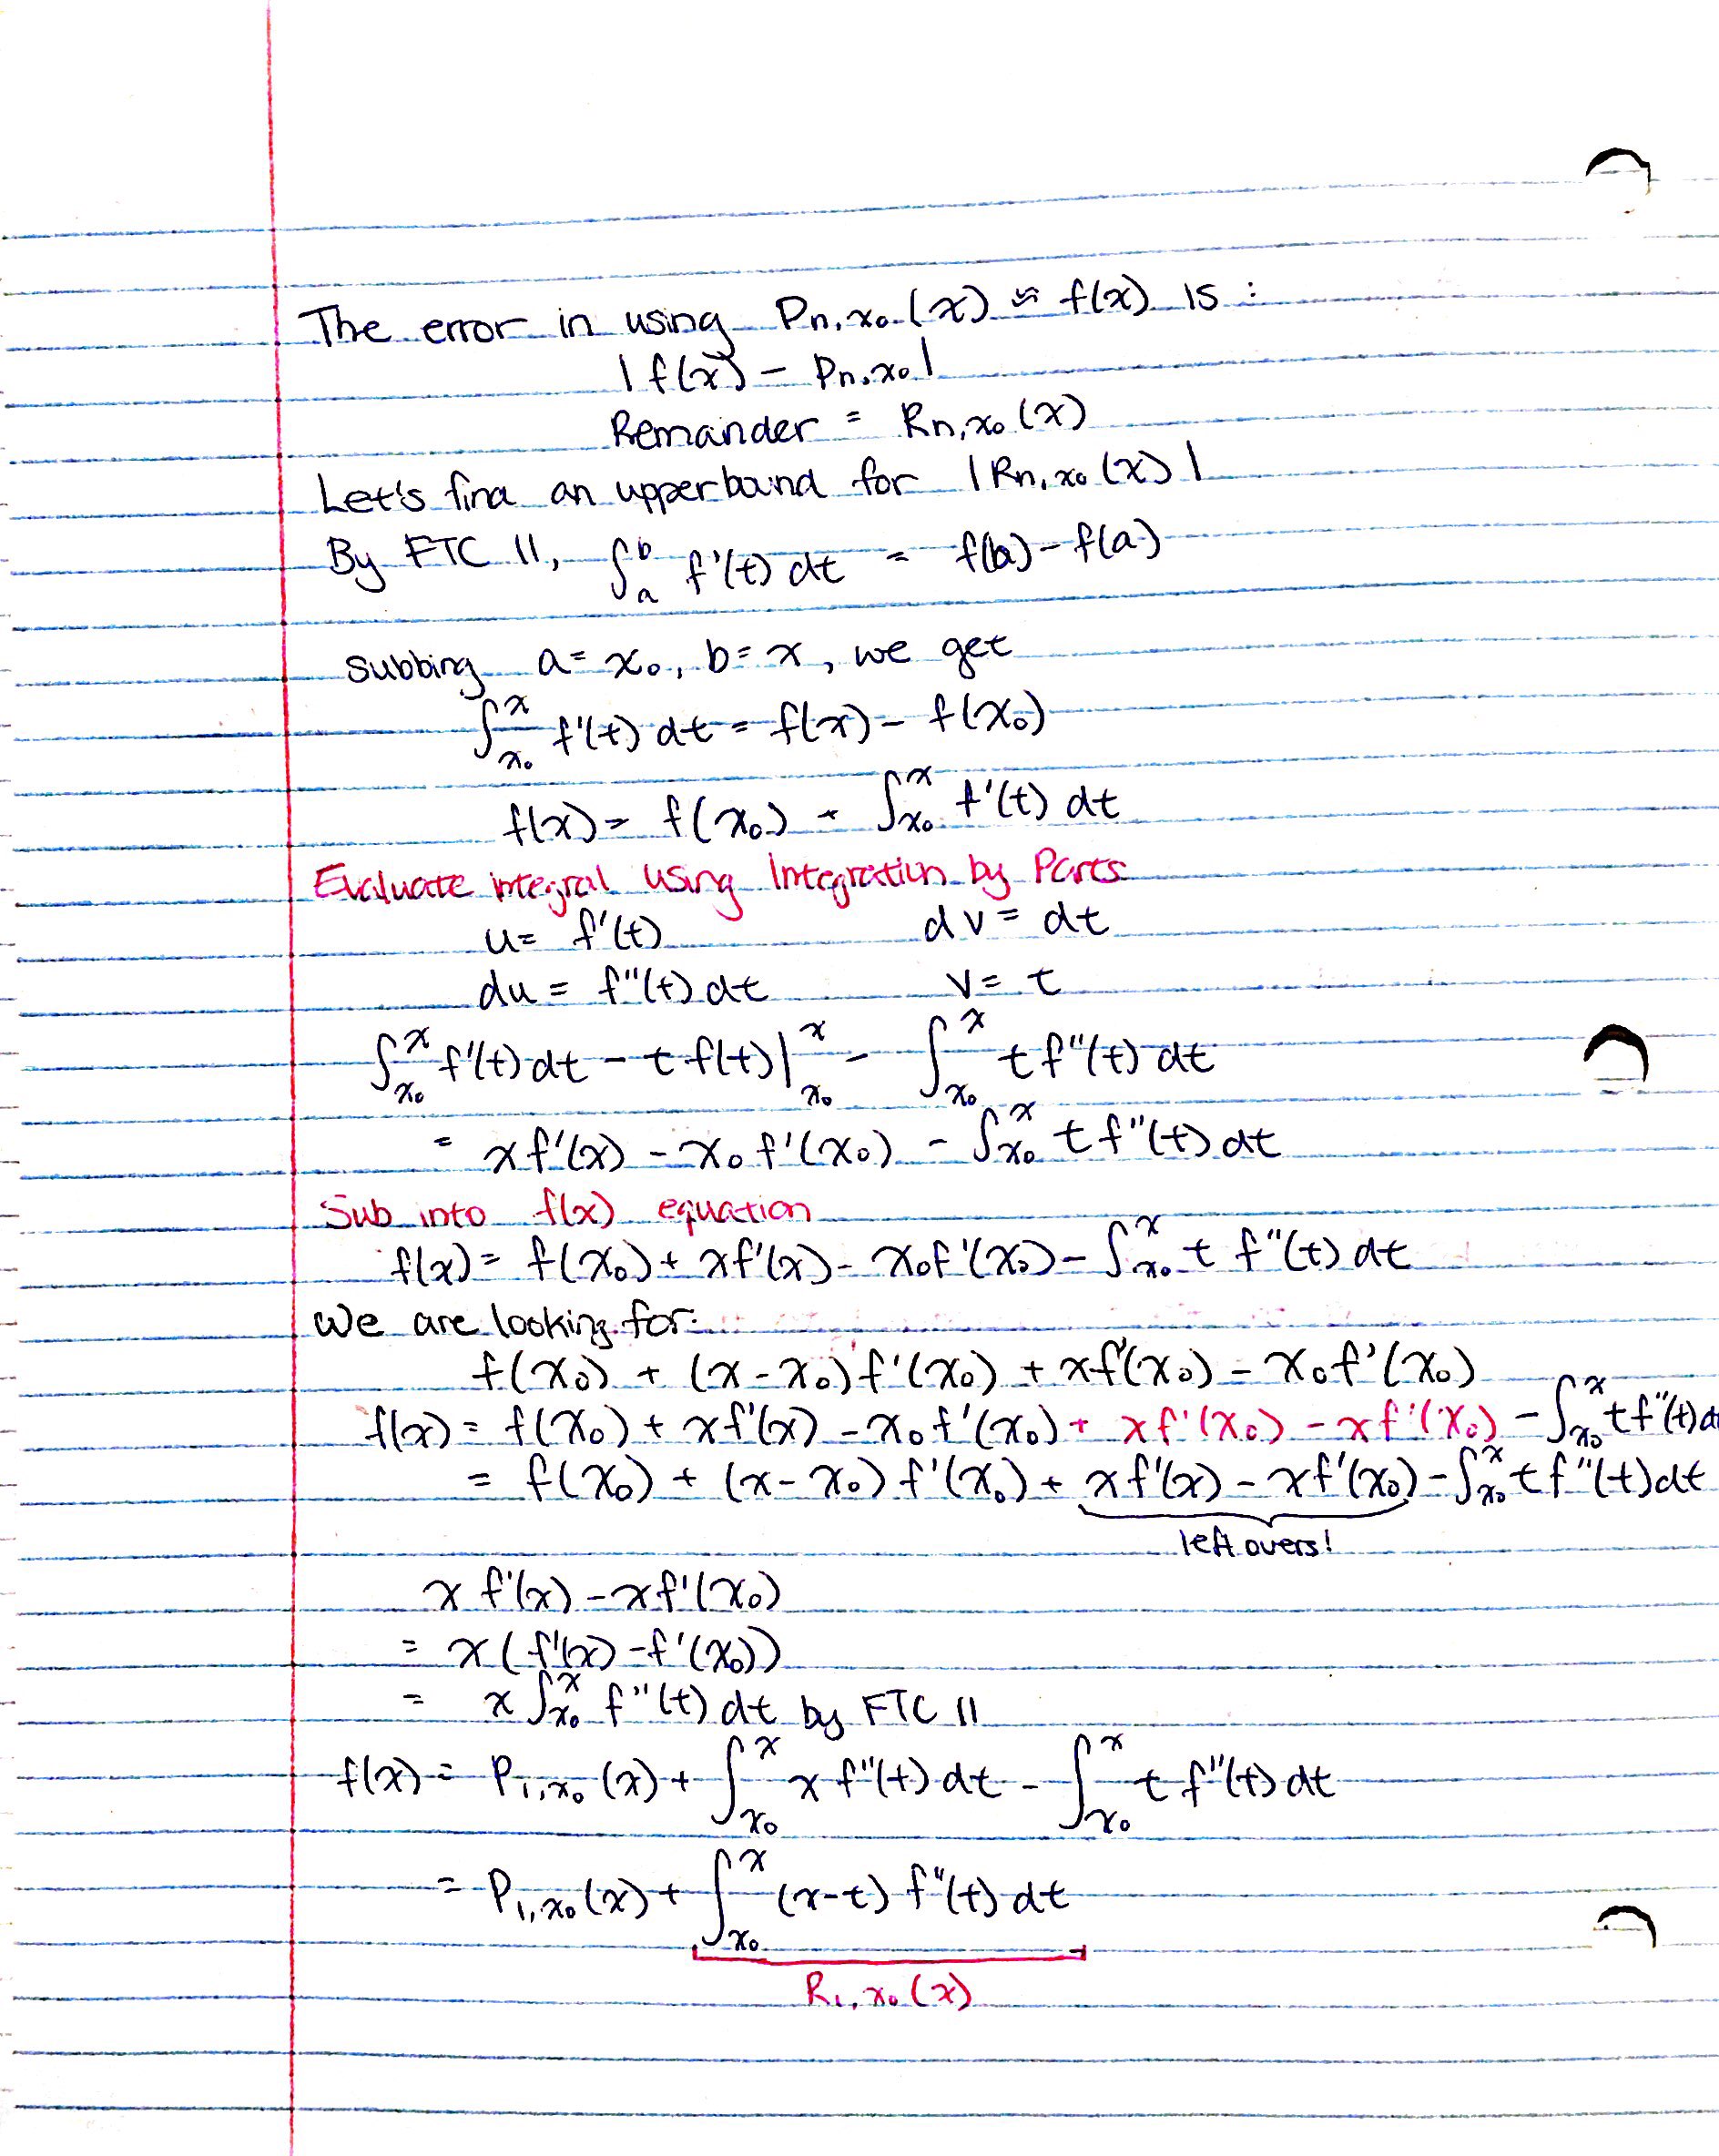 The error in using Pn,x₀(x) ≈ f(x) is :
|f(x) - Pn,x₀|
Remainder = Rn,x₀(x)
Let's find an upperbound for |Rn,x₀(x)|
By FTC II, ∫ₐᵇ f'(t) dt = f(b) - f(a)
subbing a = x₀, b = x, we get
∫ₓ₀ˣ f'(t) dt = f(x) - f(x₀)
f(x) = f(x₀) + ∫ₓ₀ˣ f'(t) dt
Evaluate integral using Integration by Parts
u = f'(t) dv = dt
du = f''(t) dt v = t
∫ₓ₀ˣ f'(t) dt - t f(t)|ₓ₀ˣ - ∫ₓ₀ˣ t f''(t) dt
= xf'(x) - x₀f'(x₀) - ∫ₓ₀ˣ t f''(t) dt
Sub into f(x) equation
f(x) = f(x₀) + xf'(x) - x₀f'(x₀) - ∫ₓ₀ˣ t f''(t) dt
We are looking for:
f(x₀) + (x - x₀)f'(x₀) + xf'(x₀) - x₀f'(x₀)
f(x) = f(x₀) + xf'(x) - x₀f'(x₀) + xf'(x₀) - xf'(x₀) - ∫ₓ₀ˣ t f''(t) d
= f(x₀) + (x - x₀) f'(x₀) + xf'(x) - xf'(x₀) - ∫ₓ₀ˣ t f''(t) dt
left overs!
x f'(x) - xf'(x₀)
= x(f'(x) - f'(x₀))
= x ∫ₓ₀ˣ f''(t) dt by FTC II
f(x) = P₁,x₀(x) + ∫ₓ₀ˣ x f''(t) dt - ∫ₓ₀ˣ t f''(t) dt
= P₁,x₀(x) + ∫ₓ₀ˣ (x-t) f''(t) dt
R₁,x₀(x)